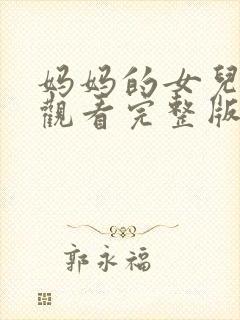 妈妈的女兒
觀看完整版
郭永福